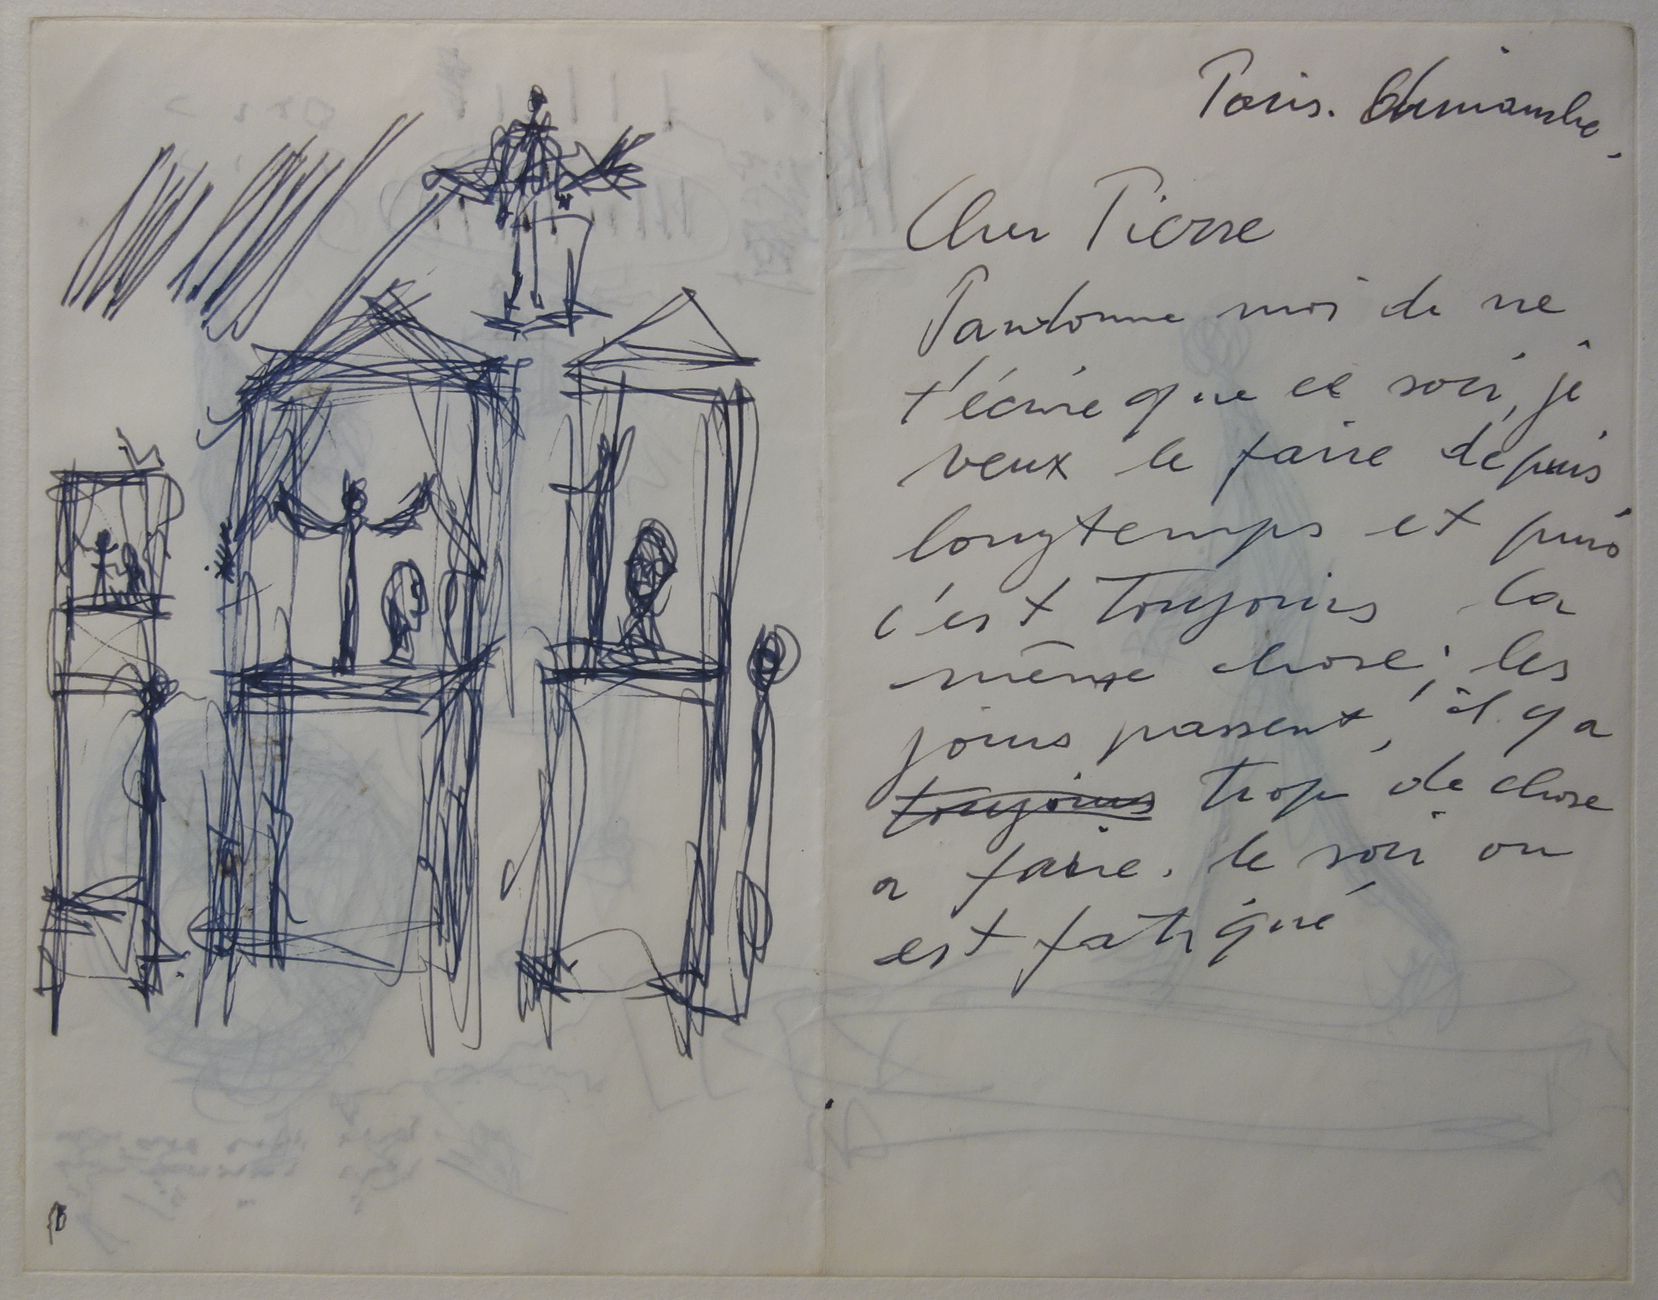 Paris. Dimanche.
Cher Pierre
Pardonne moi de ne
t'écrire que ce soir, je
veux le faire depuis
longtemps et puis
c'est toujours la
même chose; les
jours passent, il y a
toujours trop de chose
a faire. le soir on
est fatigué